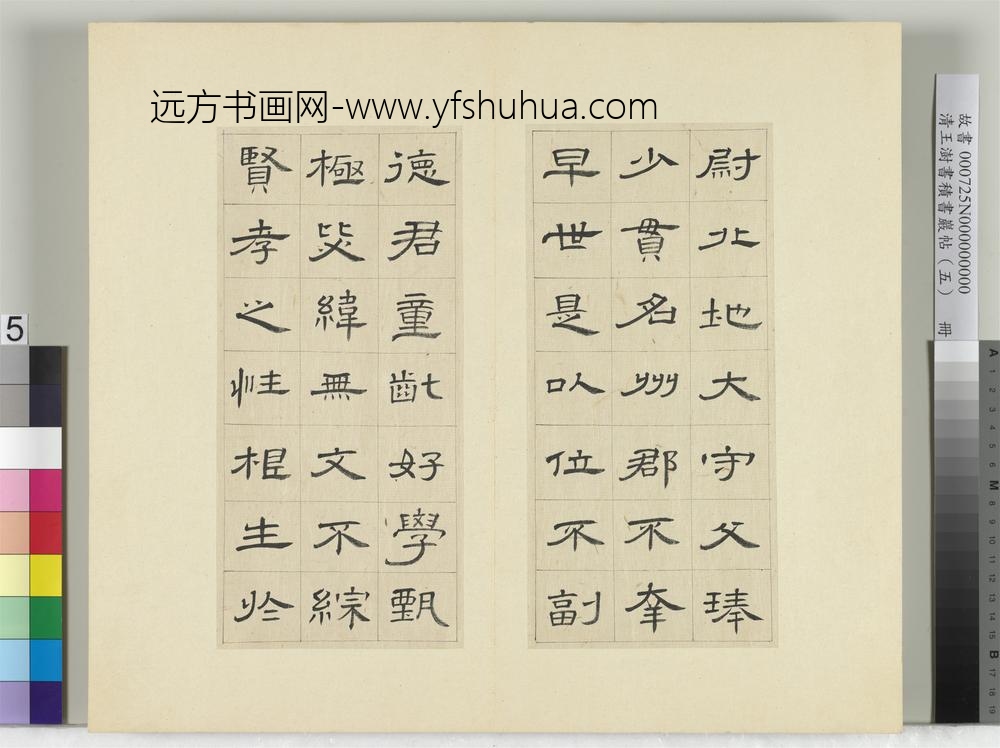 远方书画网-www.yfshuhua.com
尉北地大守父琫
少貫名州郡不幸
早世是以位不副
德君童齔好學甄
極毖緯無文不綜
賢孝之性根生於
故書 000725N000000000
清王澍書積書巖帖（五） 冊
5
A 1 2 3 4 5 6 M 8 9 10 11 12 13 14 15 B 17 18 19